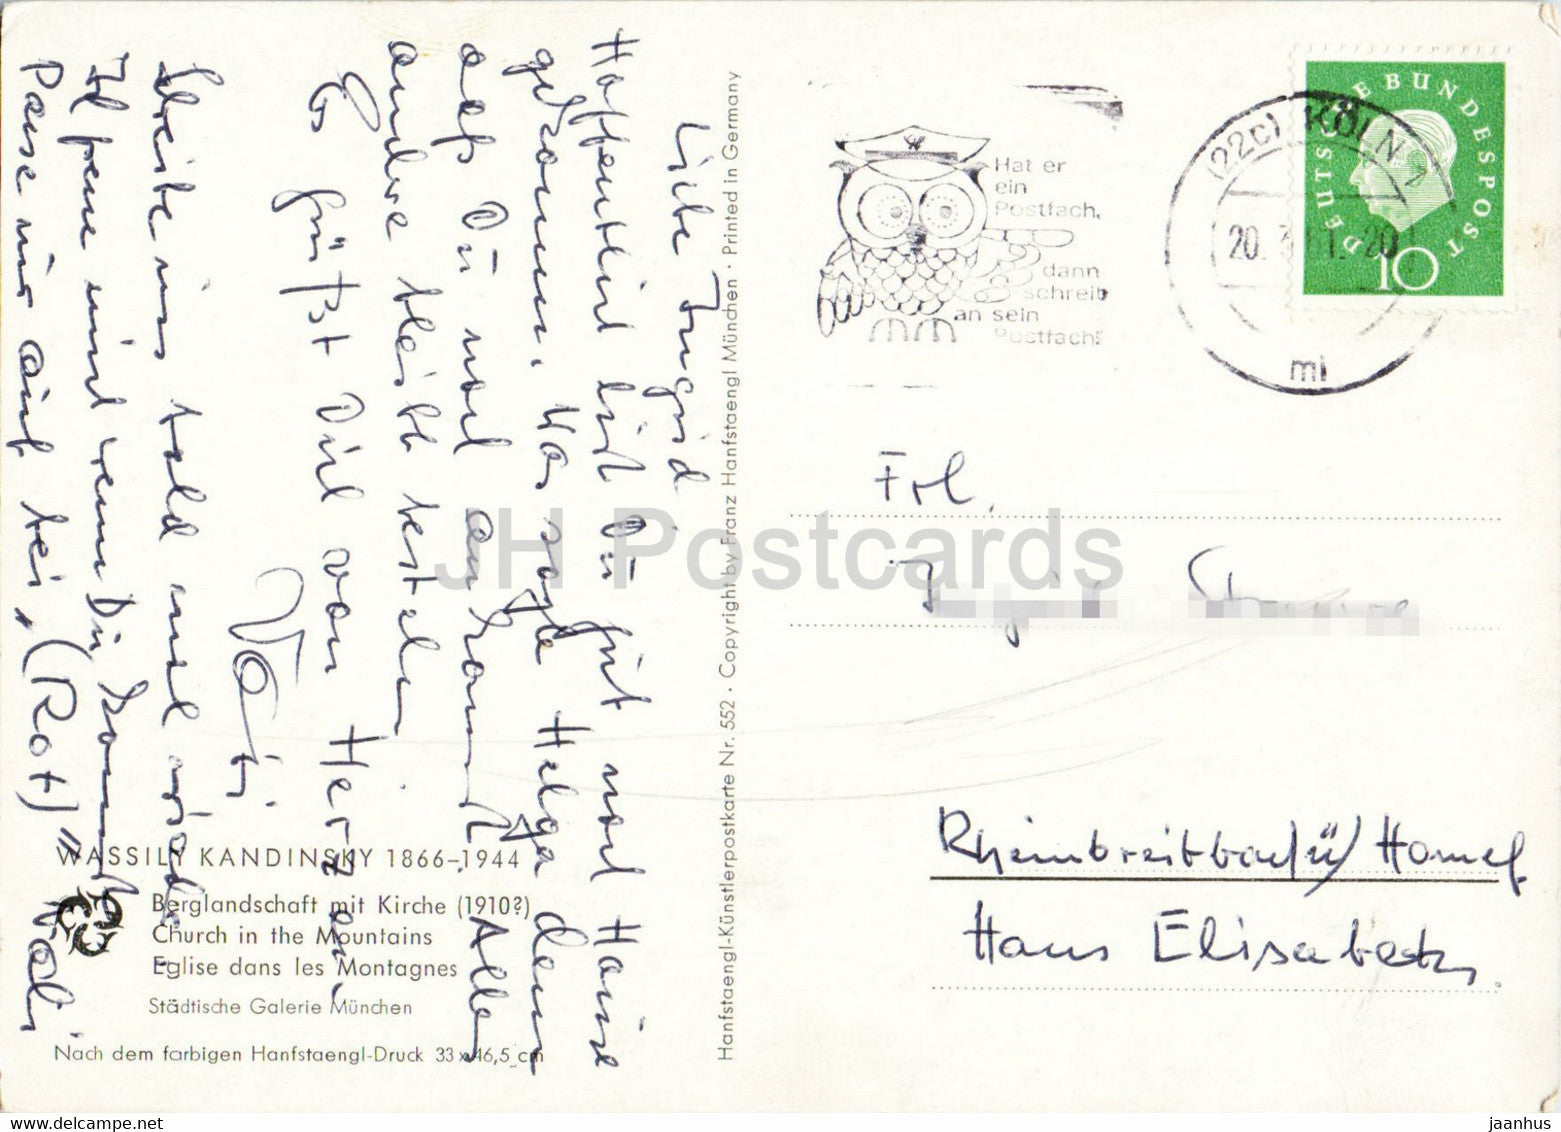 Liebe Ingrid
Hoffentlich bist Du gut nach Hause
gekommen. Was sagte Helga denn
daß Du noch an kamst. Alles
andere bleibt bestehen
Es grüßt Dich von Herzen
Schreibe uns bald mal wieder
Ich freue mich wenn Du kommst
Passe nur auf bei „(Rot)"
WASSILY KANDINSKY 1866–1944
Berglandschaft mit Kirche (1910?)
Church in the Mountains
Eglise dans les Montagnes
Städtische Galerie München
Nach dem farbigen Hanfstaengl-Druck 33 x 46,5 cm
Hanfstaengl-Künstlerpostkarte Nr. 552 · Copyright by Franz Hanfstaengl München · Printed in Germany
Hat er
ein
Postfach,
dann
schreib
an sein
Postfach!
(22c) KÖLN 1
20. 3. 61. 20
mi
DEUTSCHE BUNDESPOST
10
Frl.
Rheinbreitbach ü/ Honnef
Haus Elisabeth.
JH Postcards
www.delcampe.net
jaanhus